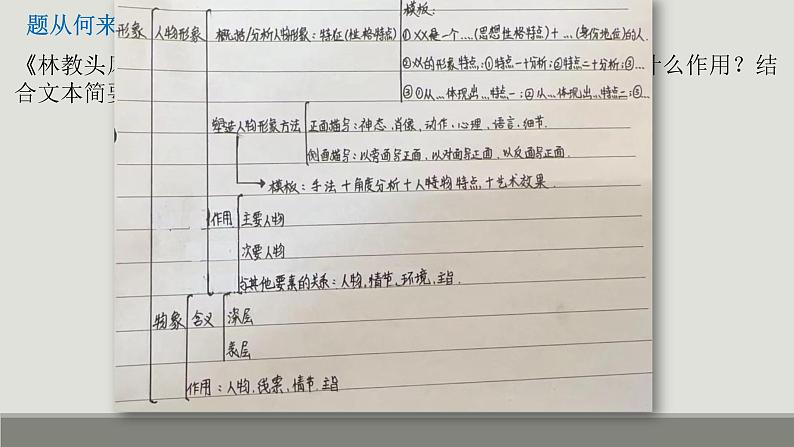 题从何来
《林教头 什么作用？结
合文本简要
模板：
形象 人物形象 概括/分析人物形象：特征(性格特点) ① XX是一个……(思想性格特点)＋…(身份地位)的人.
②XX的形象特点：①特点一＋分析；②特点二＋分析；③…
③①从…体现出…特点一；②从…体现出…特点二；③…
塑造人物形象方法 正面描写：神态、肖像、动作、心理、语言、细节.
侧面描写：以旁面写正面、以对面写正面、以反面写正面.
模板：手法＋角度分析＋人物特点＋艺术效果.
作用 主要人物
次要人物
与其他要素的关系：人物、情节、环境、主旨.
物象 含义 深层
表层
作用：人物、线索、情节、主旨